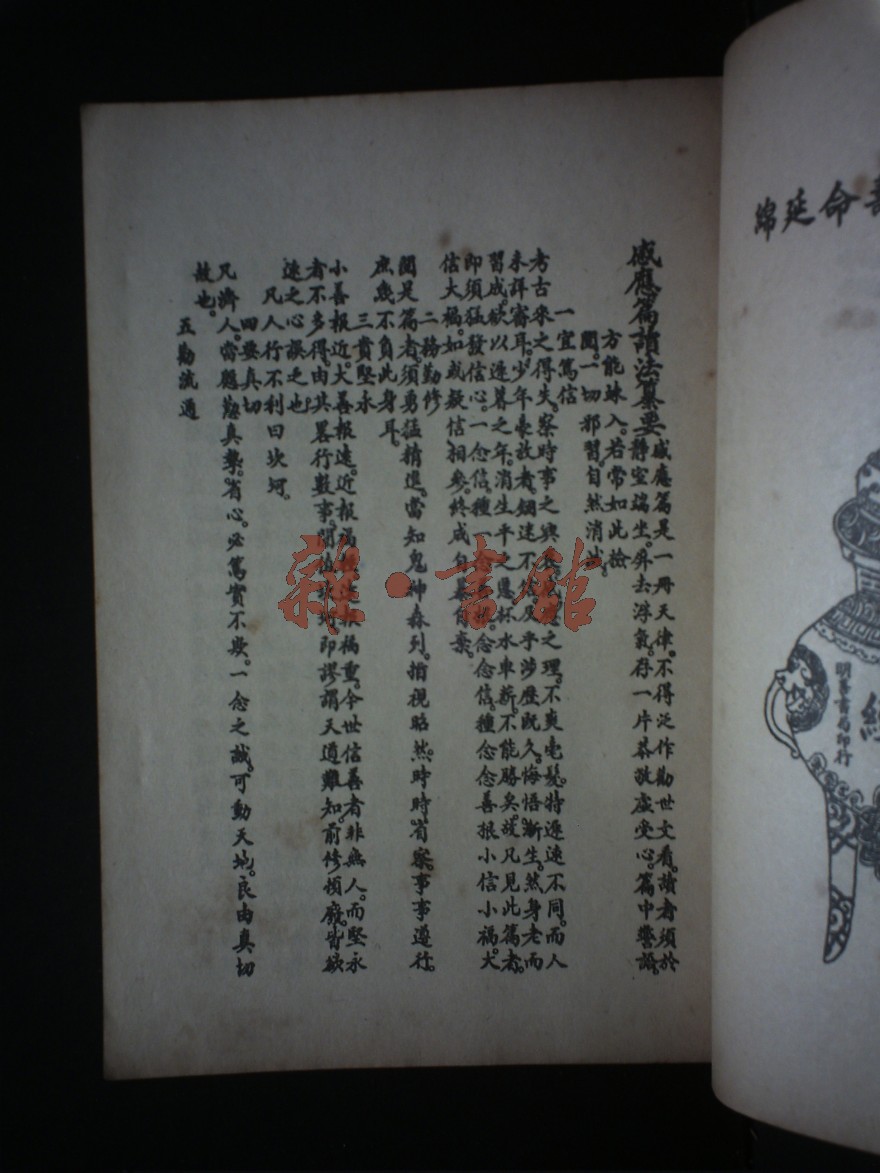 命延綿
明善書局印行
感應篇讀法纂要
感應篇是一冊天律。不得泛作勸世文看。讀者須於
靜室端坐。屏去浮氣。存一片恭敬虛受心。篇中警語。
方能妹入。若常如此檢
閱。一切邪習。自然消
一宜篤信
考古來之得失。察時事之興衰感應之理。不爽毫髮。特遲速不同。而人
未詳審耳。少年豪放者。錮迷不信。及乎涉歷既久。悔悟漸生。然身老而
習成。欲以遲暮之年。消生平之慝。杯水車薪。不能勝矣。故凡見此篇者。
即須猛發信心。一念信。種一念善根。念念信。種念念善根。小信小福。大
信大福。如或疑信相參。終成自暴自棄。
二務勤修
閱是篇者。須勇猛精進。當知鬼神森列。指視昭然。時時省察。事事遵行。
庶幾不負此身耳。
三貴堅永
小善報近。大善報遠。近報福輕遠報福重。今世信善者非無人。而堅永
者不多得。由其畧行數事。間值坎坷。即謬謂天道難知。前修頓廢。皆欲
速之心誤之也
凡人行不利曰坎坷。
四要真切
凡濟人。當慇懃真摯。省心。必篤實不欺。一念之誠。可動天地。良由真切
故也。
五勸流通
雜·書館